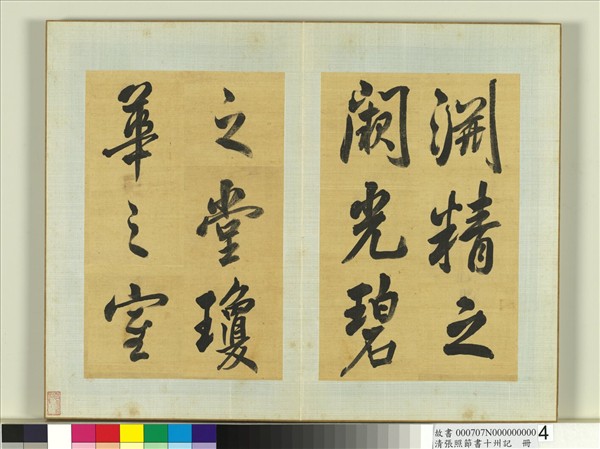 淵精之
闕光碧
之堂瓊
華之室
故書 000707N000000000 4
清張照節書十州記 冊